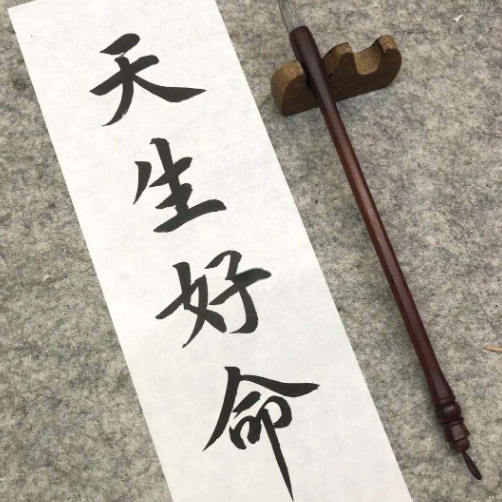 天生好命